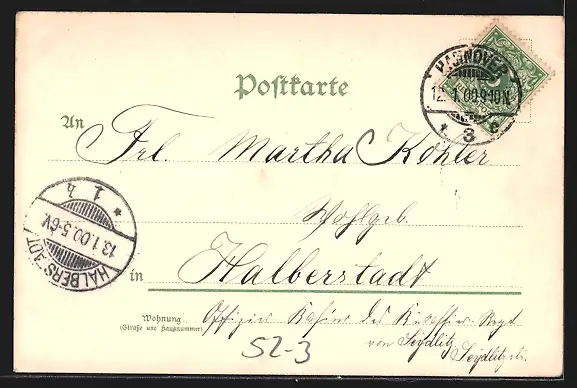 Postkarte
HANNOVER
12. 1. 00. 9-10N.
* 3 c
An Frl. Martha Köhler
Wohlgeb.
1. 4 *
13.1.00.5-6V.
HALBERSTADT
in Halberstadt
Wohnung
(Straße und Hausnummer)
Offizier Kasino des Kürassier Regt
von Seydlitz Seydlitzstr.
52-3